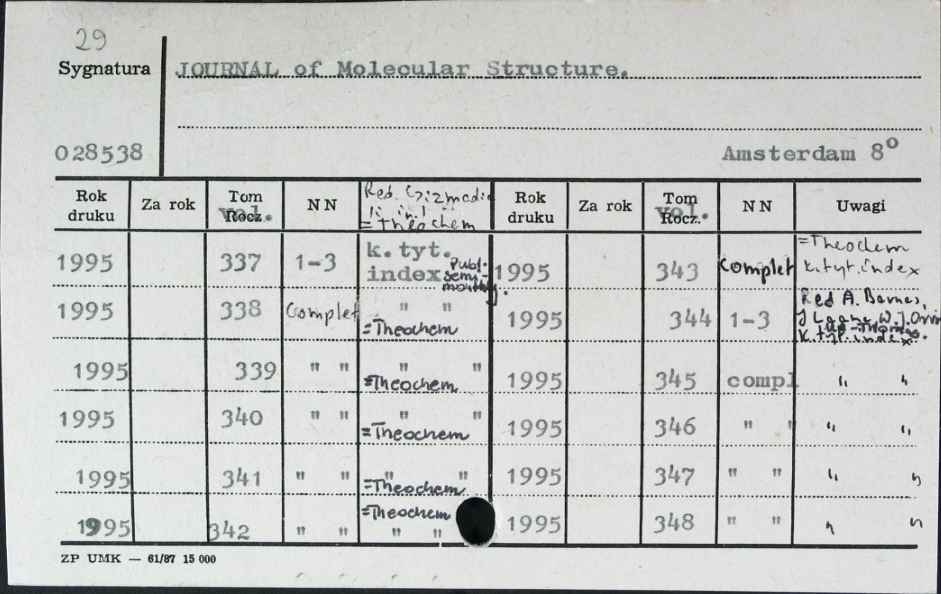 29
Sygnatura JOURNAL of Molecular Structure.
028538 Amsterdam 8°
Rok druku Za rok Tom Rocz. vol. NN Red. = Theochem Rok druku Za rok Tom Rocz. vol. NN Uwagi
1995 337 1-3 k.tyt. index Publ. semi-monthly. 1995 343 Complet =Theochem k.tyt.index
1995 338 Complet " " =Theochem 1995 344 1-3 Red A. Barnes, J Laane, W.J. k.tyt.index.
1995 339 " " " " =Theochem 1995 345 compl " "
1995 340 " " " " =Theochem 1995 346 " " " "
1995 341 " " " " =Theochem 1995 347 " " " "
1995 342 " " =Theochem " " 1995 348 " " " "
ZP UMK — 61/87 15 000